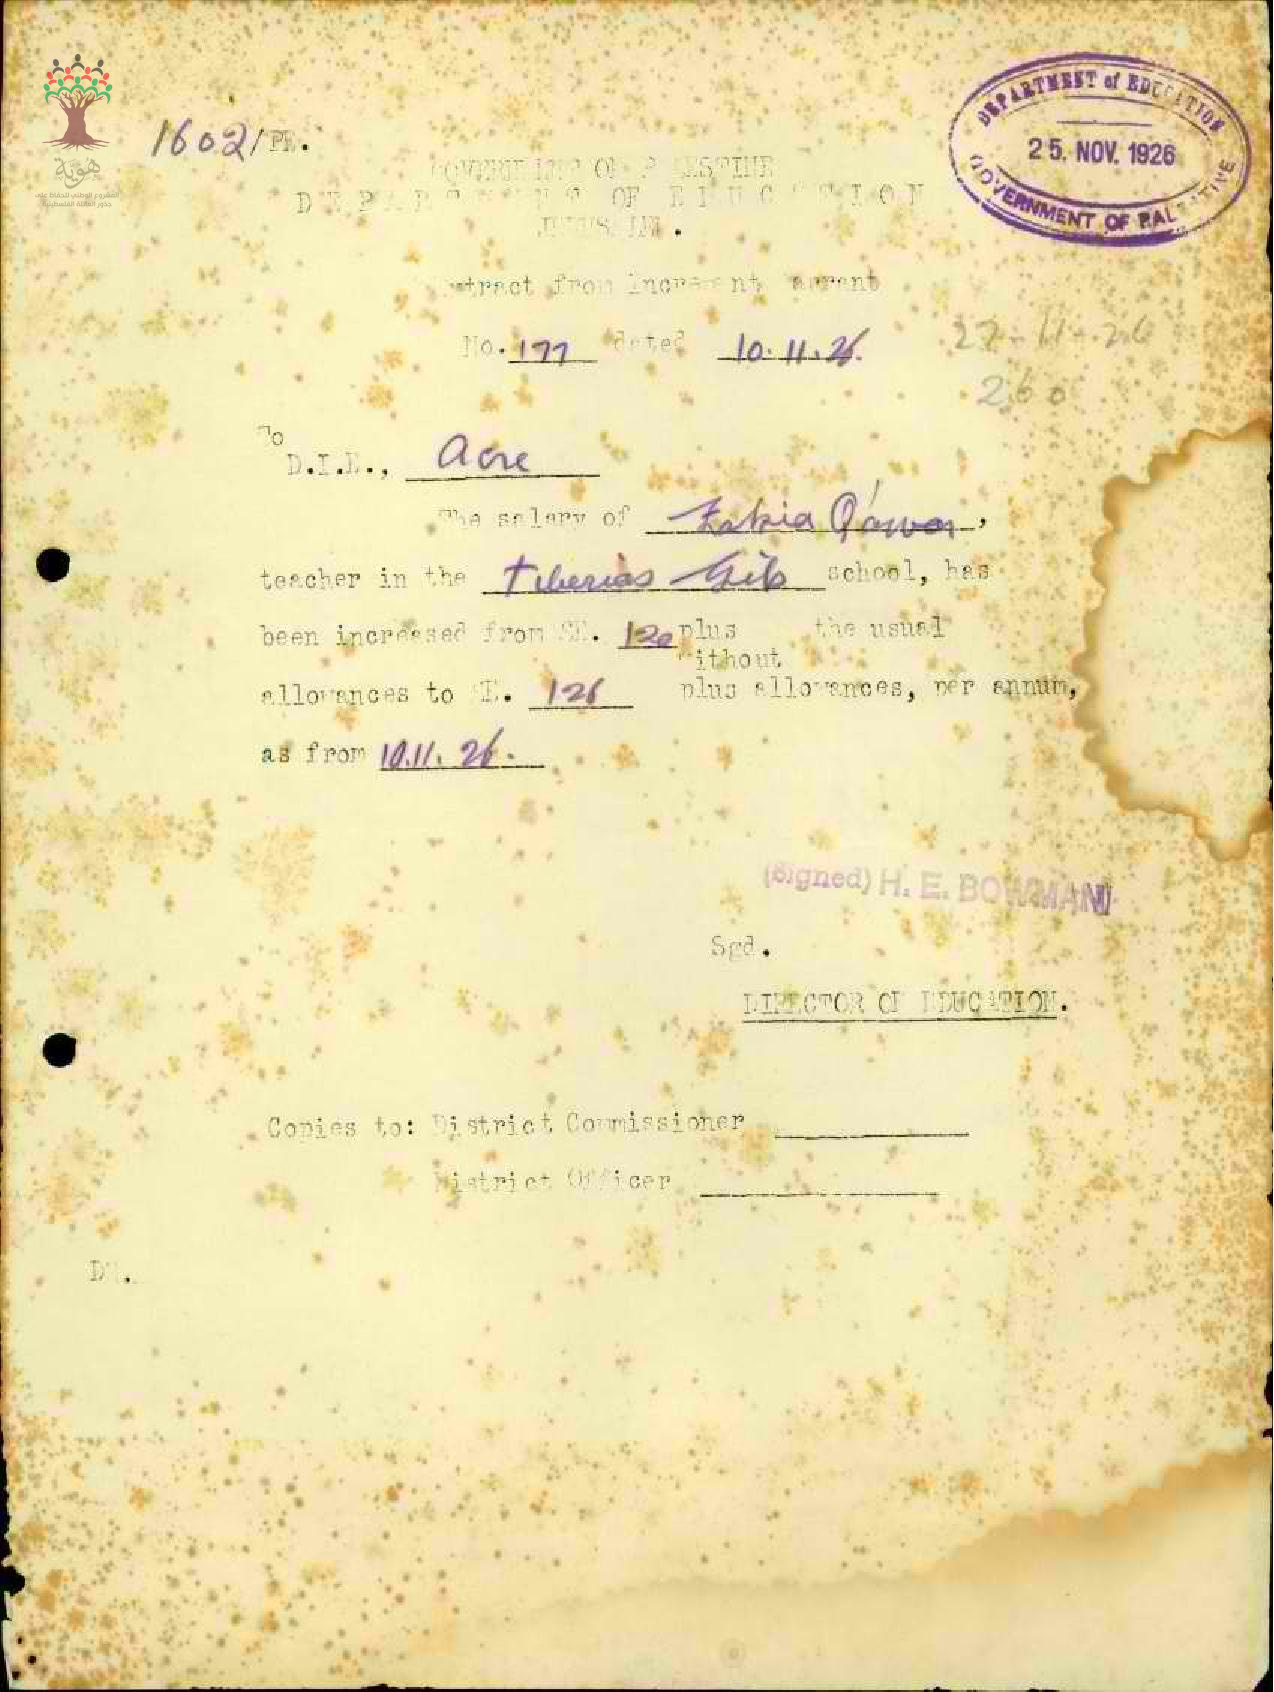 هوية
المشروع الوطني للحفاظ على
جذور العائلة الفلسطينية
1602/PE.
DEPARTMENT of EDUCATION
25. NOV. 1926
GOVERNMENT OF PALESTINE
GOVERNMENT OF PALESTINE
DEPARTMENT OF EDUCATION
JERUSALEM.
Extract from Increment Warrant
No. 177 dated 10.11.26.
27-11-26
260
To
D.I.E., Acre
The salary of Zakia Q'awar,
teacher in the Tiberias Girls school, has
been increased from £E. 120 plus the usual
without
allowances to £E. 126 plus allowances, per annum,
as from 10.11.26.
(Signed) H. E. BOWMAN
Sgd.
DIRECTOR OF EDUCATION.
Copies to: District Commissioner
District Officer